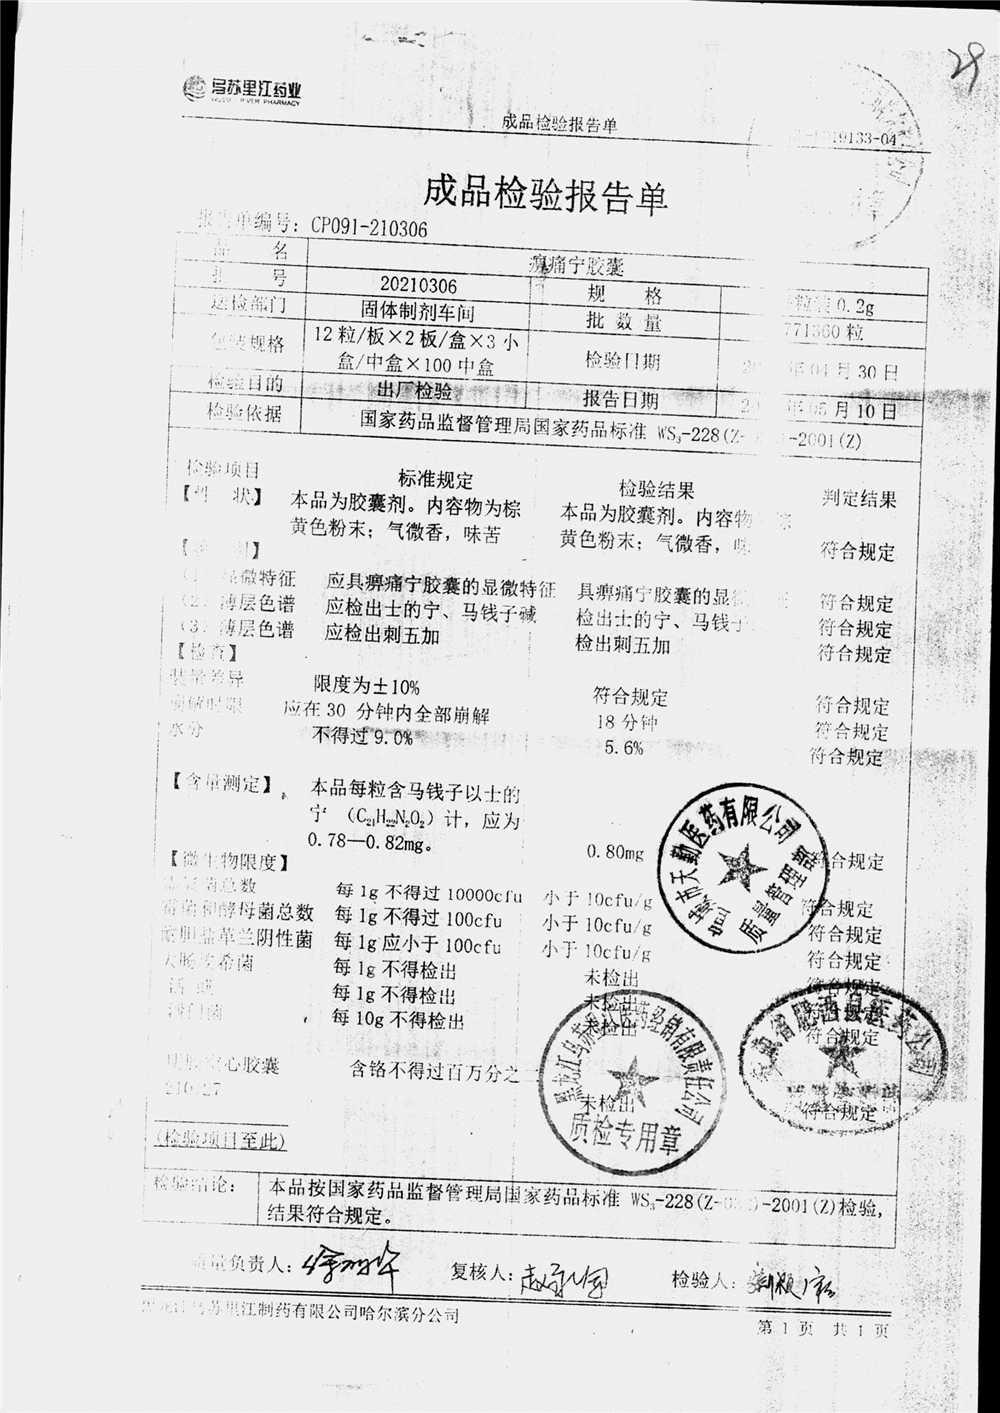 29
乌苏里江药业
成品检验报告单
19133-04
成品检验报告单
报告单编号：CP091-210306
品 名 痹痛宁胶囊
批 号 20210306 规 格 0.2g
送检部门 固体制剂车间 批 数 量 771360 粒
包装规格 12 粒/板×2 板/盒×3 小盒/中盒×100 中盒 检验日期 年 04 月 30 日
检验目的 出厂检验 报告日期 年 05 月 10 日
检验依据 国家药品监督管理局国家药品标准 WS₃-228(Z- -2001(Z)
检验项目 标准规定 检验结果 判定结果
【性 状】 本品为胶囊剂。内容物为棕 本品为胶囊剂。内容物 棕
黄色粉末；气微香，味苦 黄色粉末；气微香，味 符合规定
【 别】
(1) 显微特征 应具痹痛宁胶囊的显微特征 具痹痛宁胶囊的显 符合规定
(2) 薄层色谱 应检出士的宁、马钱子碱 检出士的宁、马钱子 符合规定
(3) 薄层色谱 应检出刺五加 检出刺五加 符合规定
【检查】
装量差异 限度为±10% 符合规定 符合规定
崩解时限 应在 30 分钟内全部崩解 18 分钟 符合规定
水分 不得过 9.0% 5.6% 符合规定
【含量测定】 本品每粒含马钱子以士的
宁 （C₂₁H₂₂N₂O₂）计，应为
0.78—0.82mg。 0.80mg 符合规定
【微生物限度】
菌总数 每 1g 不得过 10000cfu 小于 10cfu/g 符合规定
霉菌和酵母菌总数 每 1g 不得过 100cfu 小于 10cfu/g 符合规定
耐胆盐革兰阴性菌 每 1g 应小于 100cfu 小于 10cfu/g 符合规定
大肠埃希菌 每 1g 不得检出 未检出 符合规定
每 1g 不得检出 未检出 符合规定
沙门菌 每 10g 不得检出 未检出 符合规定
空心胶囊 含铬不得过百万分之二 未检出 符合规定
210 27
(检验项目至此)
检验结论： 本品按国家药品监督管理局国家药品标准 WS₃-228(Z- )-2001(Z)检验，
结果符合规定。
质量负责人： 复核人： 检验人：
黑龙江乌苏里江制药有限公司哈尔滨分公司
第 1 页 共 1 页
市天勤医药有限公司
质量管理部
黑龙江乌苏里江医药经销有限责任公司
质检专用章
医药公司